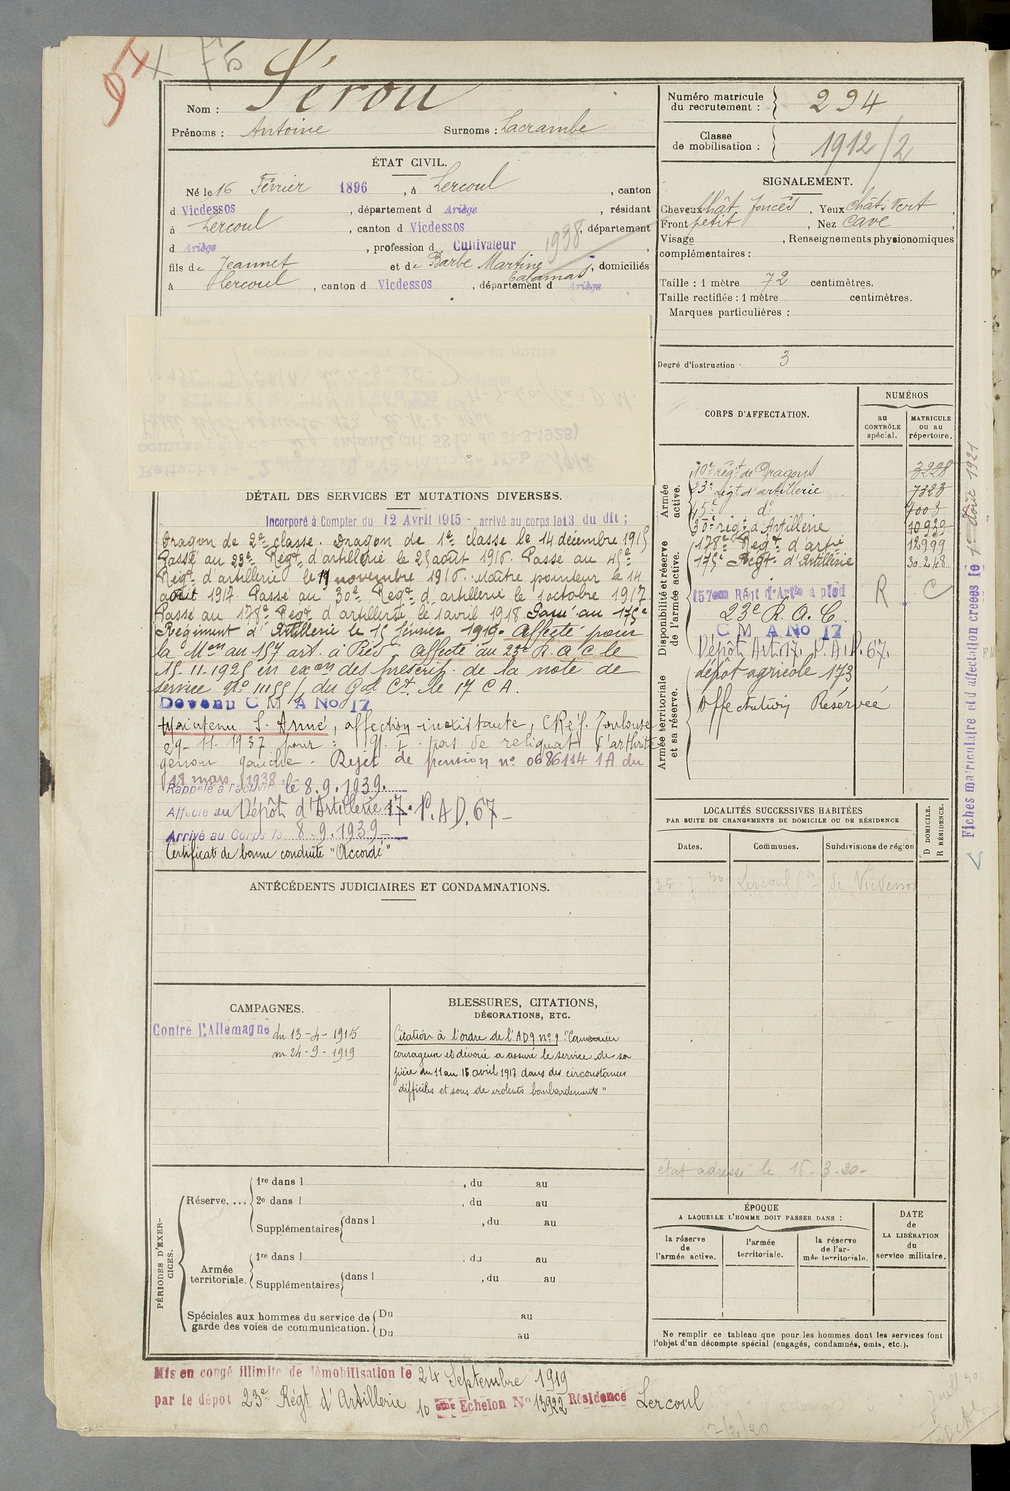 97
Nom : Sérou
Prénoms : Antoine Surnoms : Lacrambe
Numéro matricule du recrutement : 294
Classe de mobilisation : 1912/2
ÉTAT CIVIL.
Né le 16 Février 1896, à Lercoul, canton
d Vicdessos, département d Ariège, résidant
à Lercoul, canton d Vicdessos, département
d Ariège, profession d Cultivateur
1938
fils de Jeannet et de Barbe Martine Calamas, domiciliés
à Lercoul, canton d Vicdessos, département d Ariège
SIGNALEMENT.
Cheveux Chât. foncés, Yeux chât. vert,
Front petit, Nez cave
Visage , Renseignements physionomiques
complémentaires :
Taille : 1 mètre 72 centimètres.
Taille rectifiée : 1 mètre centimètres.
Marques particulières :
Degré d'instruction 3
CORPS D'AFFECTATION.
NUMÉROS
au CONTRÔLE spécial.
MATRICULE ou au répertoire.
Armée active.
10e régt de Dragons 3228
23e régt d'artillerie 7323
45e do 7003
30e régt d'Artillerie 10939
Disponibilité et réserve de l'armée active.
178e Régt d'art 12999
175e Régt d'Artillerie
157ème Régt d'Artie à pied R C
23e R.A.C.
C M A No 17
Dépôt Art. 17. P.A.D. 67.
Armée territoriale et sa réserve.
dépôt agricole 173
Affectation Réservée
Fiches matriculaire et d'affectation créées le 1er Août 1921
DÉTAIL DES SERVICES ET MUTATIONS DIVERSES.
Incorporé à Compter du 12 Avril 1915 - arrivé au corps le 13 du dit ;
Dragon de 2e classe. Dragon de 1e classe le 14 décembre 1915
Passé au 23e Régt d'artillerie le 25 août 1916. Passé au 45e
Régt d'artillerie le 19 novembre 1916. Maître pointeur le 14
août 1917. Passé au 30e Régt d'artillerie le 1 octobre 1917
Passé au 178e Régt d'artillerie le 1 avril 1918 Passé au 175e
Régiment d'Artillerie le 15 février 1919. Affecté pour
la Mon au 157 art. à Pied. Affecté au 23e R A C le
15.11.1925 en exon des prescrip. de la note de
service No 11155/ du Gal Ct. le 17 C A.
Devenu C M A No 17
Maintenu S. Armé, affection inexistante, C Réf. Toulouse
29-11-1937 pour : N'y a pas de reliquats d'arthrite
genou gauche - Rejet de pension no 0686114 1A du
18 mars 1938
Rappelé à l'activité le 8.9.1939.
Affecté au Dépôt d'Artillerie 17. P.A.D. 67-
Arrivé au Corps le 8.9.1939-
Certificat de bonne conduite "Accordé"
LOCALITÉS SUCCESSIVES HABITÉES
PAR SUITE DE CHANGEMENTS DE DOMICILE OU DE RÉSIDENCE
Dates. Communes. Subdivisions de région D DOMICILE. R RÉSIDENCE.
Lercoul de Vicdessos
ANTÉCÉDENTS JUDICIAIRES ET CONDAMNATIONS.
CAMPAGNES.
Contre l'Allemagne du 13-4-1915
au 24-9-1919
BLESSURES, CITATIONS, DÉCORATIONS, ETC.
Citation à l'ordre de l'AD9 no 9 "Canonnier
courageux et dévoué a assuré le service de sa
pièce du 11 au 18 avril 1917 dans des circonstances
difficiles et sous de violents bombardements"
état adressé le 16-3-20-
PÉRIODES D'EXERCICES.
Réserve.... 1re dans l , du au
2e dans l , du au
Supplémentaires dans l , du au
Armée territoriale. 1re dans l , du au
Supplémentaires dans l , du au
Spéciales aux hommes du service de garde des voies de communication. Du au
Du au
ÉPOQUE
A LAQUELLE L'HOMME DOIT PASSER DANS :
la réserve de l'armée active.
l'armée territoriale.
la réserve de l'armée territoriale.
DATE de LA LIBÉRATION du service militaire.
Ne remplir ce tableau que pour les hommes dont les services font
l'objet d'un décompte spécial (engagés, condamnés, omis, etc.).
Mis en congé illimité de démobilisation le 24 Septembre 1919
par le dépôt 23e Régt d'Artillerie 10 ème Echelon No 13922 Résidence Lercoul